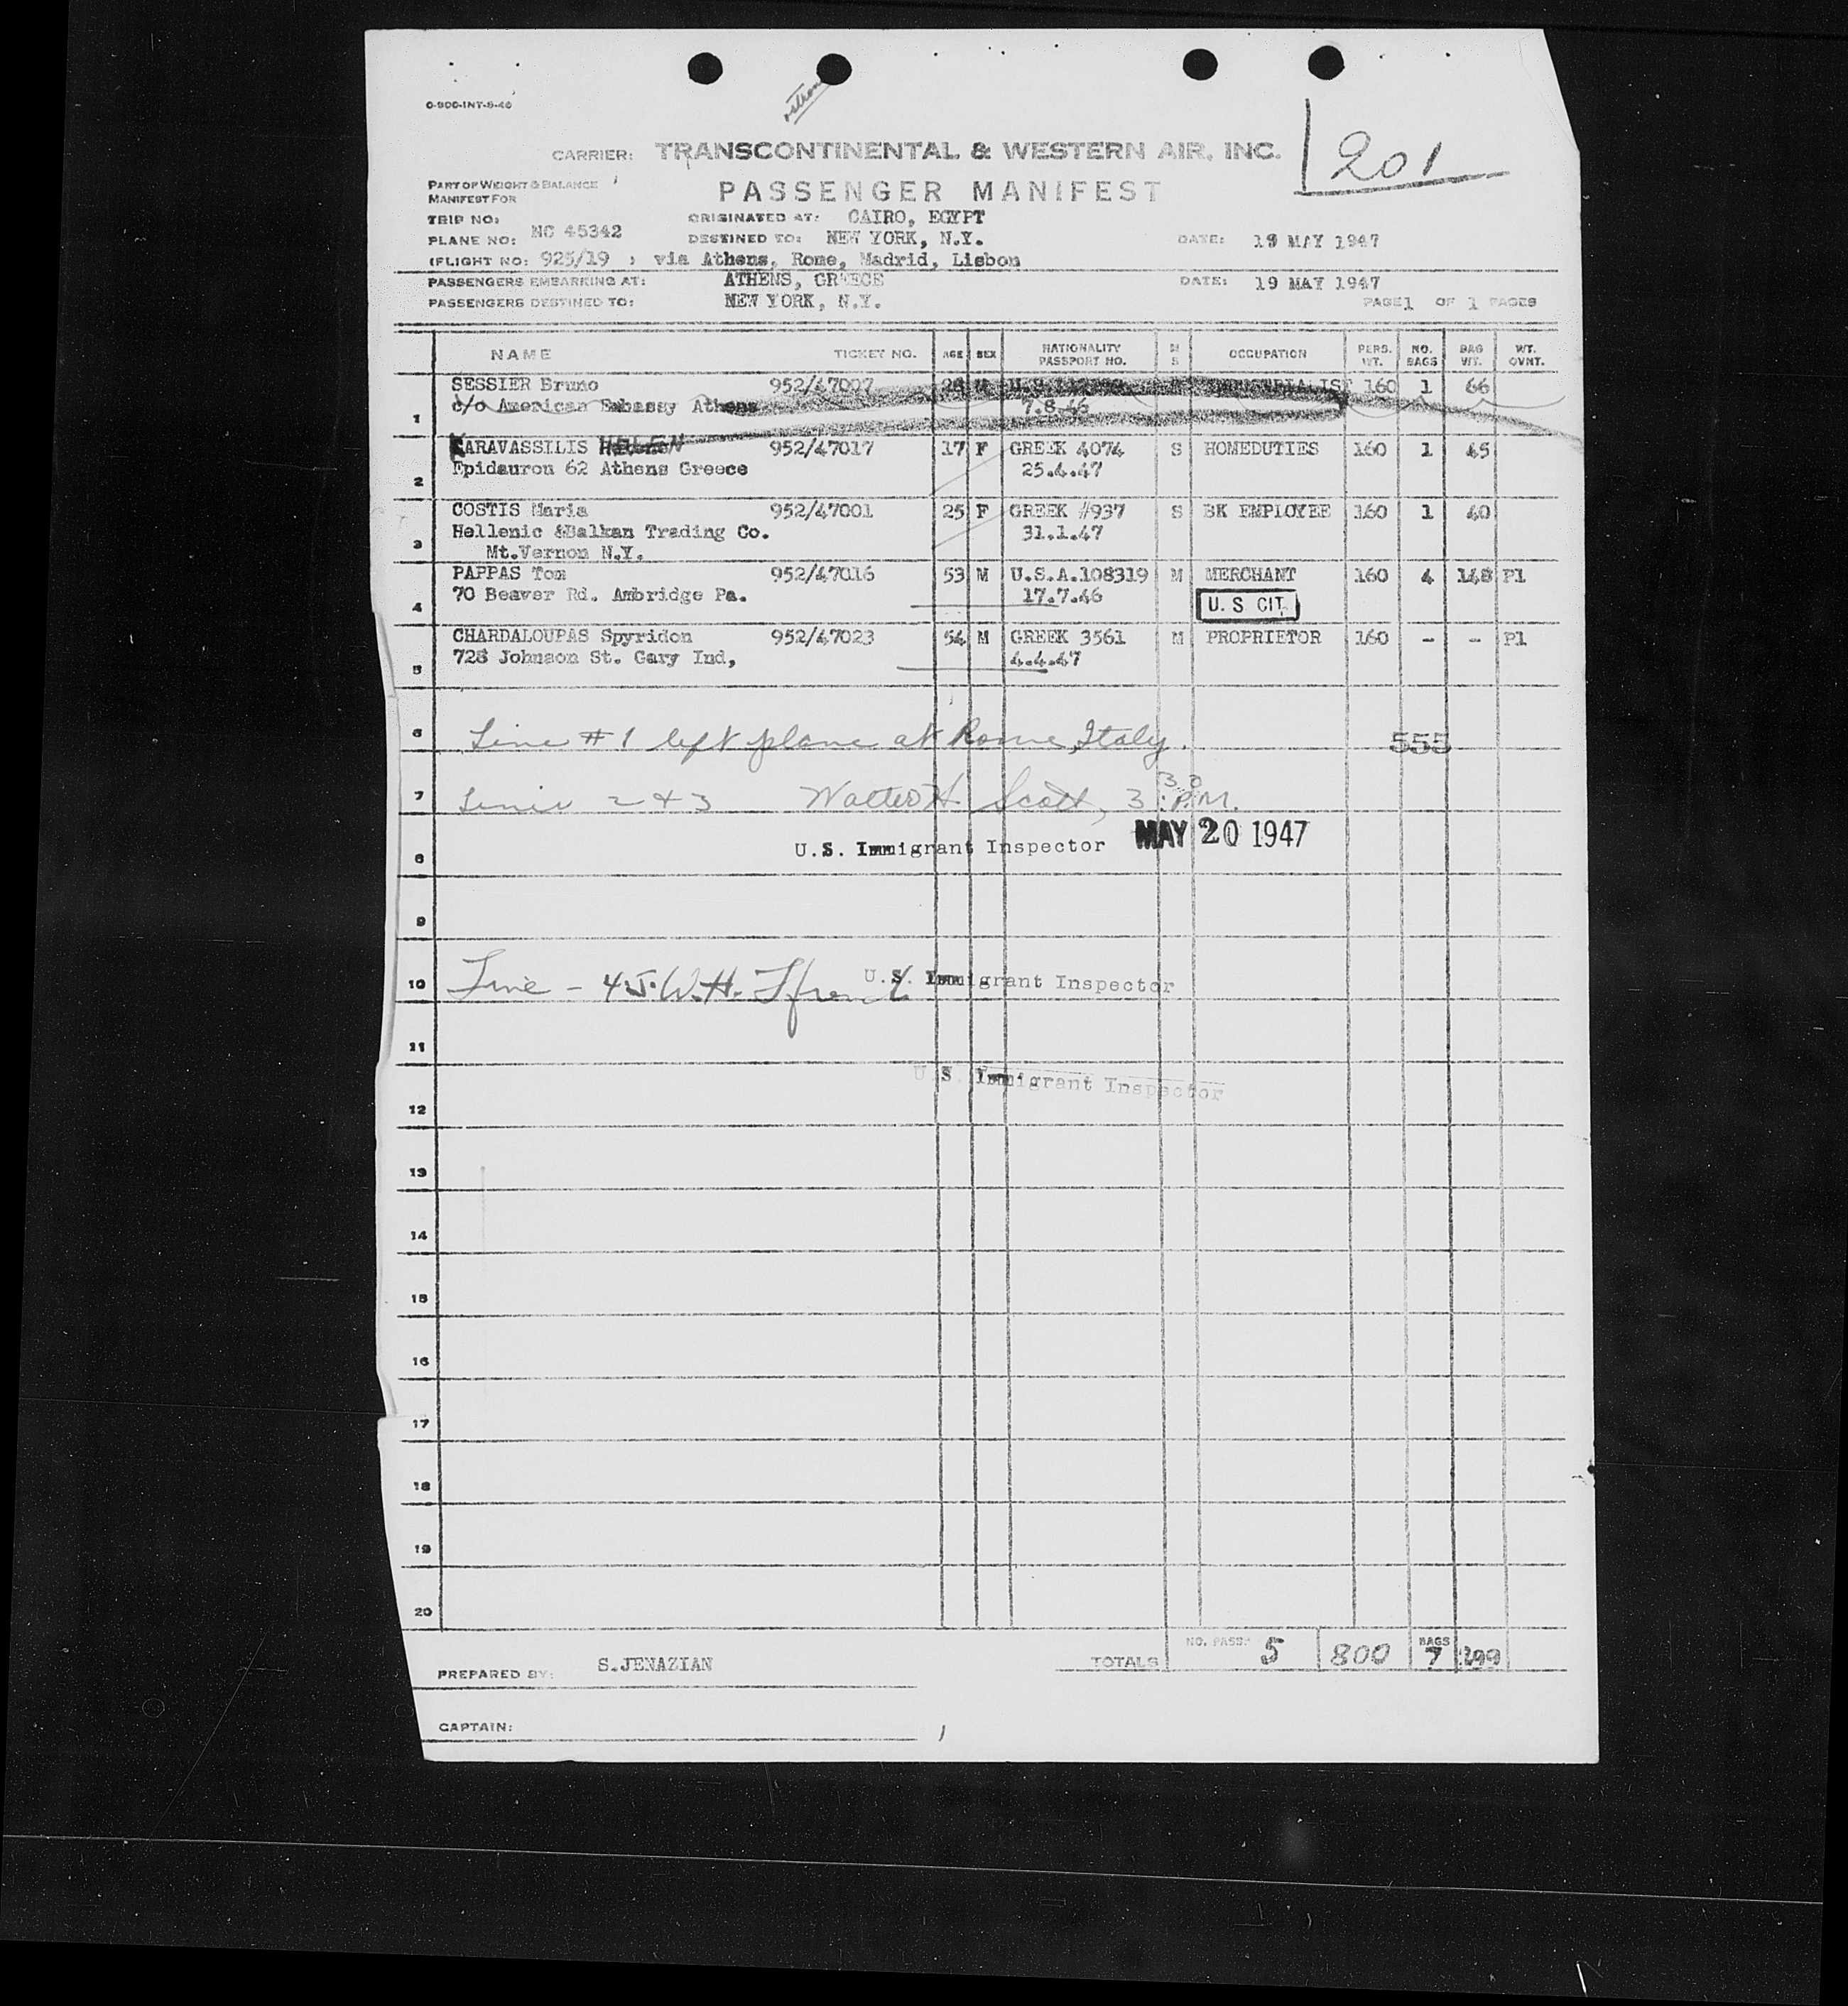 0-900-INT-8-46
CARRIER: TRANSCONTINENTAL & WESTERN AIR, INC.
201
PART OF WEIGHT & BALANCE
MANIFEST FOR
PASSENGER MANIFEST
TRIP NO: ORIGINATED AT: CAIRO, EGYPT
PLANE NO: NC 45342 DESTINED TO: NEW YORK, N.Y. DATE: 19 MAY 1947
(FLIGHT NO: 925/19 ; via Athens, Rome, Madrid, Lisbon
PASSENGERS EMBARKING AT: ATHENS, GREECE DATE: 19 MAY 1947
PASSENGERS DESTINED TO: NEW YORK, N.Y. PAGE 1 OF 1 PAGES
NAME TICKET NO. AGE SEX NATIONALITY PASSPORT NO. M S OCCUPATION PERS. WT. NO. BAGS BAG WT. WT. OVNT.
SESSIER Bruno 952/47007 M INDUSTRIALIST 160 1 66
1 c/o American Embassy Athens 7.8.46
KARAVASSILIS HELEN 952/47017 17 F GREEK 4074 S HOMEDUTIES 160 1 45
2 Epidauron 62 Athens Greece 25.4.47
COSTIS Maria 952/47001 25 F GREEK #937 S BK EMPLOYEE 160 1 40
3 Hellenic &Balkan Trading Co. 31.1.47
Mt.Vernon N.Y.
PAPPAS Tom 952/47016 53 M U.S.A.108319 M MERCHANT 160 4 148 P1
4 70 Beaver Rd. Ambridge Pa. 17.7.46 U. S CIT.
CHARDALOUPAS Spyridon 952/47023 54 M GREEK 3561 M PROPRIETOR 160 - - P1
5 728 Johnson St. Gary Ind, 4.4.47
6 Line #1 left plane at Rome, Italy. 555
7 Lines 2 & 3 Walter H Scott, 3:30 P.M.
8 U.S. Immigrant Inspector MAY 20 1947
9
10 Line - 4 5. W.H. U.S. Immigrant Inspector
11
12 U.S. Immigrant Inspector
13
14
15
16
17
18
19
20
PREPARED BY: S.JENAZIAN TOTALS NO. PASS: 5 800 BAGS 7 299
CAPTAIN: